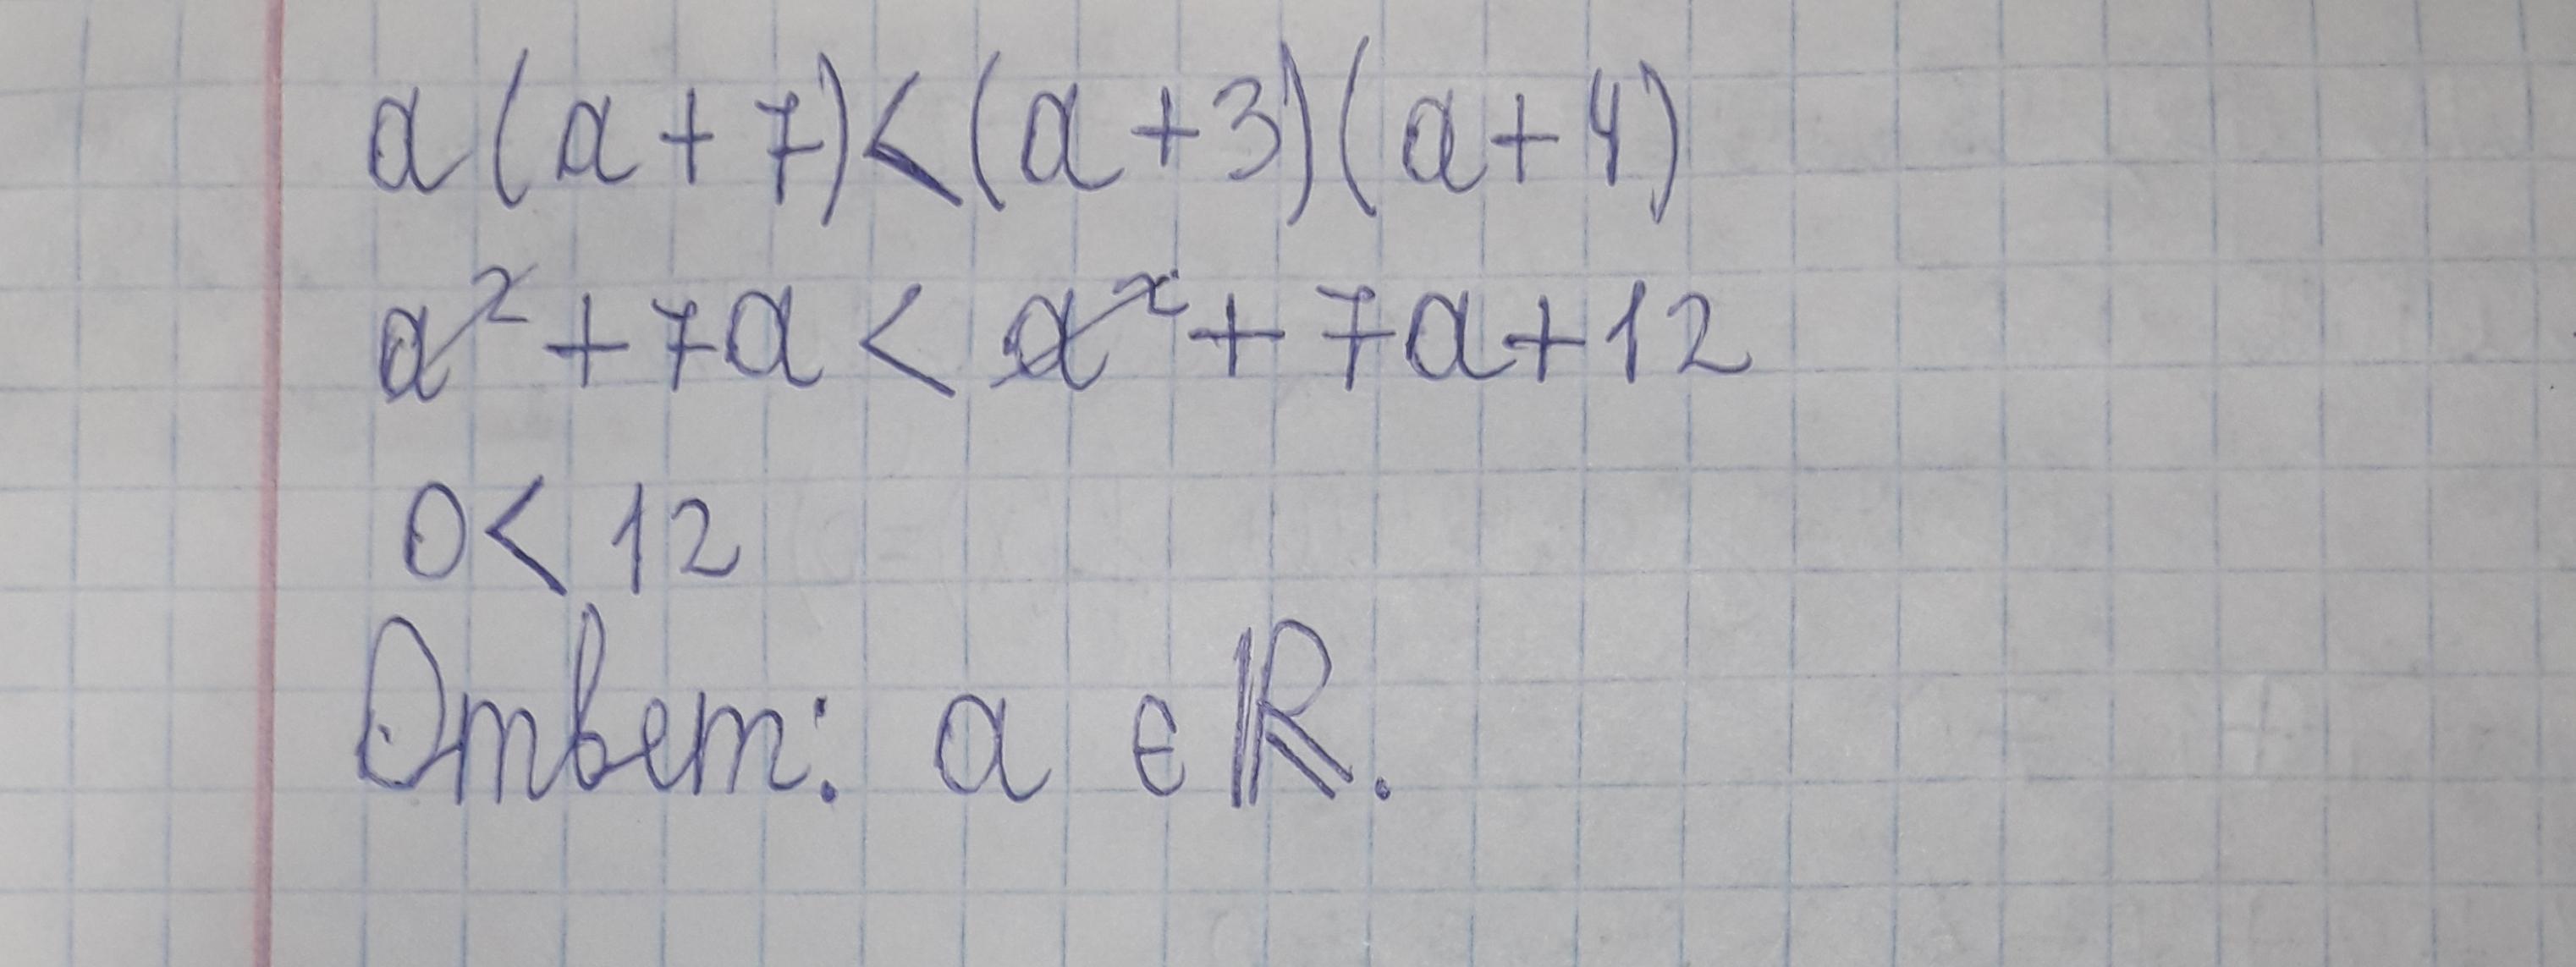 a(a+7)<(a+3)(a+4)
a²+7a<a²+7a+12
0<12
Ответ: a ∈ ℝ.